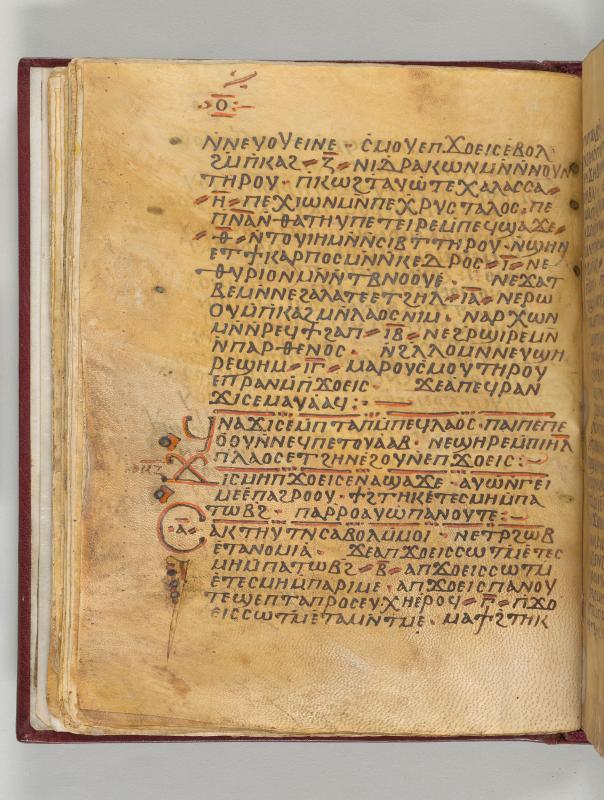 ⲟ̅
ⲛ̅ⲛⲉⲩⲟⲩⲉⲓⲛⲉ · ⲥⲙⲟⲩⲉⲡϫⲟⲉⲓⲥⲉⲃⲟⲗ
ϩⲙ̅ⲡⲕⲁϩ ⲍ̅ · ⲛⲓⲇⲣⲁⲕⲱⲛⲙⲛ̅ⲛⲛⲟⲩⲛ
ⲧⲏⲣⲟⲩ · ⲡⲕⲱϩⲧⲁⲩⲱⲧⲉⲭⲁⲗⲁⲥⲥⲁ
ⲏ̅ · ⲡⲉⲭⲓⲱⲛⲙⲛ̅ⲡⲉⲭⲣⲩⲥⲧⲁⲗⲟⲥ · ⲡⲉ
ⲡⲛ̅ⲁ̅ⲛϩⲁⲧⲏⲩⲡⲉⲧⲉⲓⲣⲉⲙ̅ⲡⲉϥϣⲁϫⲉ
ⲑ̅ · ⲛ̅ⲧⲟⲩⲓⲏⲙⲛ̅ⲛⲥⲓⲃⲧⲧⲏⲣⲟⲩ · ⲛ̅ϣⲏⲛ
ⲉⲧϯⲕⲁⲣⲡⲟⲥⲙⲛ̅ⲛ̅ⲕⲉⲇⲣⲟⲥ ⲓ̅ · ⲛⲉ
ⲑⲩⲣⲓⲟⲛⲙⲛ̅ⲛⲧⲃⲛⲟⲟⲩⲉ · ⲛⲉϫⲁⲧ
ⲃⲉⲙⲛ̅ⲛⲉϩⲁⲗⲁⲧⲉⲉⲧϩⲏⲗ ⲓ̅ⲁ̅ · ⲛⲉⲣⲱ
ⲟⲩⲙ̅ⲡⲕⲁϩⲙⲛ̅ⲗⲁⲟⲥⲛⲓⲙ · ⲛⲁⲣⲭⲱⲛ
ⲙⲛ̅ⲛ̅ⲣⲉϥϯϩⲁⲡ ⲓ̅ⲃ̅ · ⲛⲉϩⲣϣⲓⲣⲉⲙⲛ̅
ⲛ̅ⲡⲁⲣⲑⲉⲛⲟⲥ · ⲛ̅ϩⲗ̅ⲗⲟⲙⲛ̅ⲛⲉⲩϣⲏ
ⲣⲉϣⲏⲙ ⲓ̅ⲅ̅ · ⲙⲁⲣⲟⲩⲥⲙⲟⲩⲧⲏⲣⲟⲩ
ⲉⲡⲣⲁⲛⲙ̅ⲡϫⲟⲉⲓⲥ · ϫⲉⲁⲡⲉϥⲣⲁⲛ
ϫⲓⲥⲉⲙⲁⲩⲁⲁϥ :
ϥⲛⲁϫⲓⲥⲉⲙ̅ⲡⲧⲁⲡⲙ̅ⲡⲉϥⲗⲁⲟⲥ · ⲡⲁⲓⲡⲉⲡⲉ
ⲟⲟⲩⲛ̅ⲛⲉϥⲡⲉⲧⲟⲩⲁⲁⲃ · ⲛⲉϣⲏⲣⲉⲙ̅ⲡⲓⲏⲗ
ⲡⲗⲁⲟⲥⲉⲧϩⲏⲛⲉϩⲟⲩⲛⲉⲡϫⲟⲉⲓⲥ :
ϫⲓⲥⲙⲏⲡϫⲟⲉⲓⲥⲉⲛⲁϣⲁϫⲉ · ⲁⲩⲱⲛ̅ⲅⲉⲓ
ⲙⲉⲉⲡⲁϩⲣⲟⲟⲩ · ϯϩⲧⲏⲕⲉⲧⲉⲥⲙⲏⲙ̅ⲡⲁ
ⲧⲱⲃϩ · ⲡⲁⲣⲣⲟⲁⲩⲱⲡⲁⲛⲟⲩⲧⲉ :
ⲥⲁ̅ⲁⲕⲧⲏⲩⲧⲛ̅ⲥⲁⲃⲟⲗⲙ̅ⲙⲟⲓ · ⲛⲉⲧⲣ̅ϩⲱⲃ
ⲉⲧⲁⲛⲟⲙⲓⲁ · ϫⲉⲁⲡϫⲟⲉⲓⲥⲥⲱⲧⲙ̅ⲉⲧⲉⲥ
ⲙⲏⲙ̅ⲡⲁⲧⲱⲃϩ ⲃ̅ · ⲁⲡϫⲟⲉⲓⲥⲥⲱⲧⲙ̅
ⲉⲧⲉⲥⲙⲏⲙ̅ⲡⲁⲣⲓⲙⲉ · ⲁⲡϫⲟⲉⲓⲥⲡⲁⲛⲟⲩ
ⲧⲉϣⲉⲡⲧⲁⲡⲣⲟⲥⲉⲩⲭⲏⲉⲣⲟϥ ⲅ̅ · ⲡϫⲟ
ⲉⲓⲥⲥⲱⲧⲙ̅ⲉⲧⲁⲙⲛ̅ⲧⲙⲉ · ⲙⲁϯϩⲧⲏⲕ